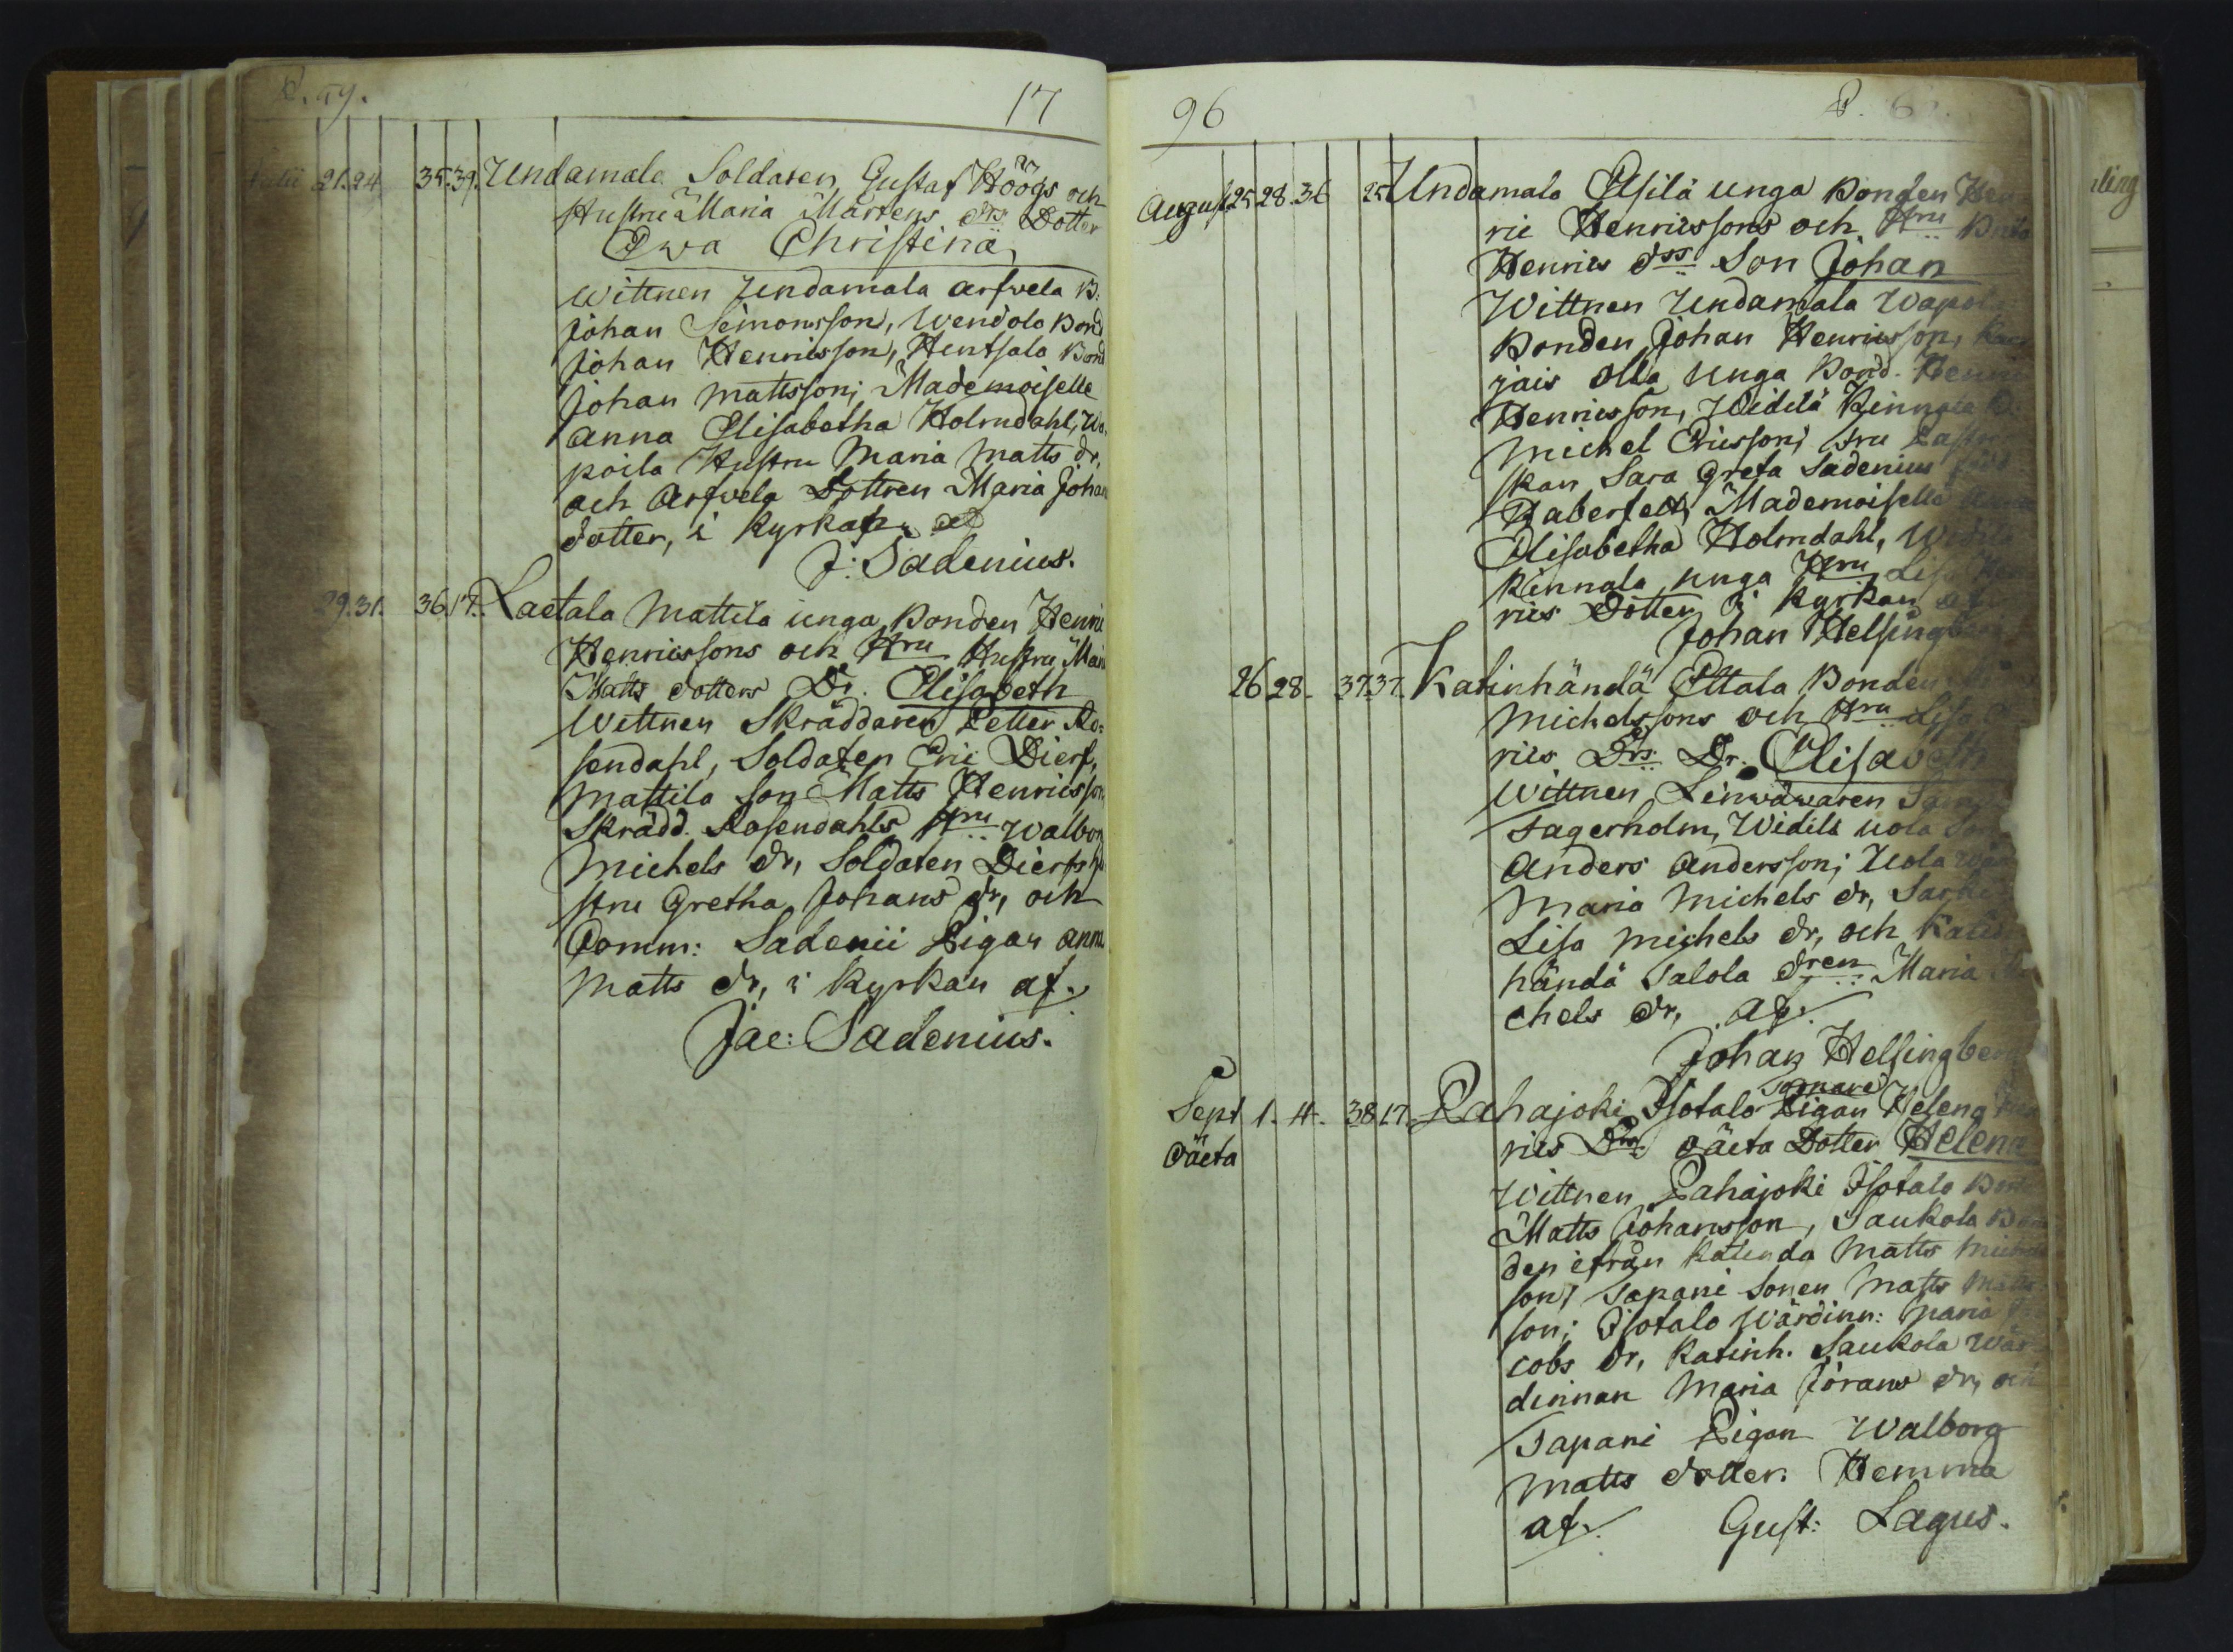 P. 59. 17
Julii 21. 24. 35. 39. Undamala Soldaten Gustaf Höögs och
Hustru Maria Mårtens drs Dotter
Ewa Christina
Wittnen Undamala arfvela B:
Johan Simonsson, Wendolo Bond
Johan Henricsson, Hentsala Bond
Johan Mattsson; Mademoiselle
Anna Elisabetha Holmdahl, Wa
poila Hustru Maria Matts dr,
och Arfvela Dottren Maria Johan
dotter, i Kyrkan af
J: Sadenius.
29. 31. 36. 17. Laetala Mattila unga Bonden Henric
Henricssons och Hru Hustru Mari
Matts dotters Dr. Elisabeth
Wittnen Skräddaren Petter Ro=
sendahl, Soldaten Eric Dierf,
Mattila Son Matts Henricsson
Skrädd. Rosendahls Hru Walbor
Michels dr, Soldaten Dierfs hu
stru Gretha Johans dr, och
Comm: Sadenii Pigan Anna
Matts dr, i Kyrkan af.
Jac: Sadenius.
96 P. 60.
August 25 28. 36 25. Undamala Elsilä unga Bonden Hen
ric Henricssons och Hru Brita
Henrics drs Son Johan
Wittnen Undamala Wapoi
Bonden Johan Henricsson,
jais Olla unga Bond. Henric
Henricsson, Widilä Kinnala
Michel Ericsson; Fru Pastor
skan Sara Greta Sadenius född
Haberfelt, Mademoiselle Anna
Elisabetha Holmdahl, Widilä
Kinnala unga Hru Lisa Hen
rics Dotter i Kyrkan af
Johan Helsingberg
26 28. 37. 37. Katinhändä Ettala Bonden
Michelssons och Hru Lisa
rics Drs Dr. Elisabeth
Wittnen Linwäwaren
Fagerholm, Widilä uola Son
Anders Andersson; Uola wär
Maria Michels dr,
Lisa Michels dr, och Katin
händä Salola dren Maria Mi
chels dr, af.
Johan Helsingberg
Sept 1. 4. 38 17. Pahajoki Isotalo Sonnare Pigan Helena Hen
oäcta rics Drs oäcta Dotter Helena
Wittnen Pahajoki Isotalo Bonden
Matts Johansson, Saukola Bon
den ifrån Katinda Matts Michels
son, Tapani Sonen Matts Matts
son; Isotalo Wärdinn: Maria Ja
cobs dr, Katinh. Saukola Wär
dinnan Maria Jörans dr, och
Tapani Pigan Walborg
Matts dotter. Hemma
af. Gust: Lagus.